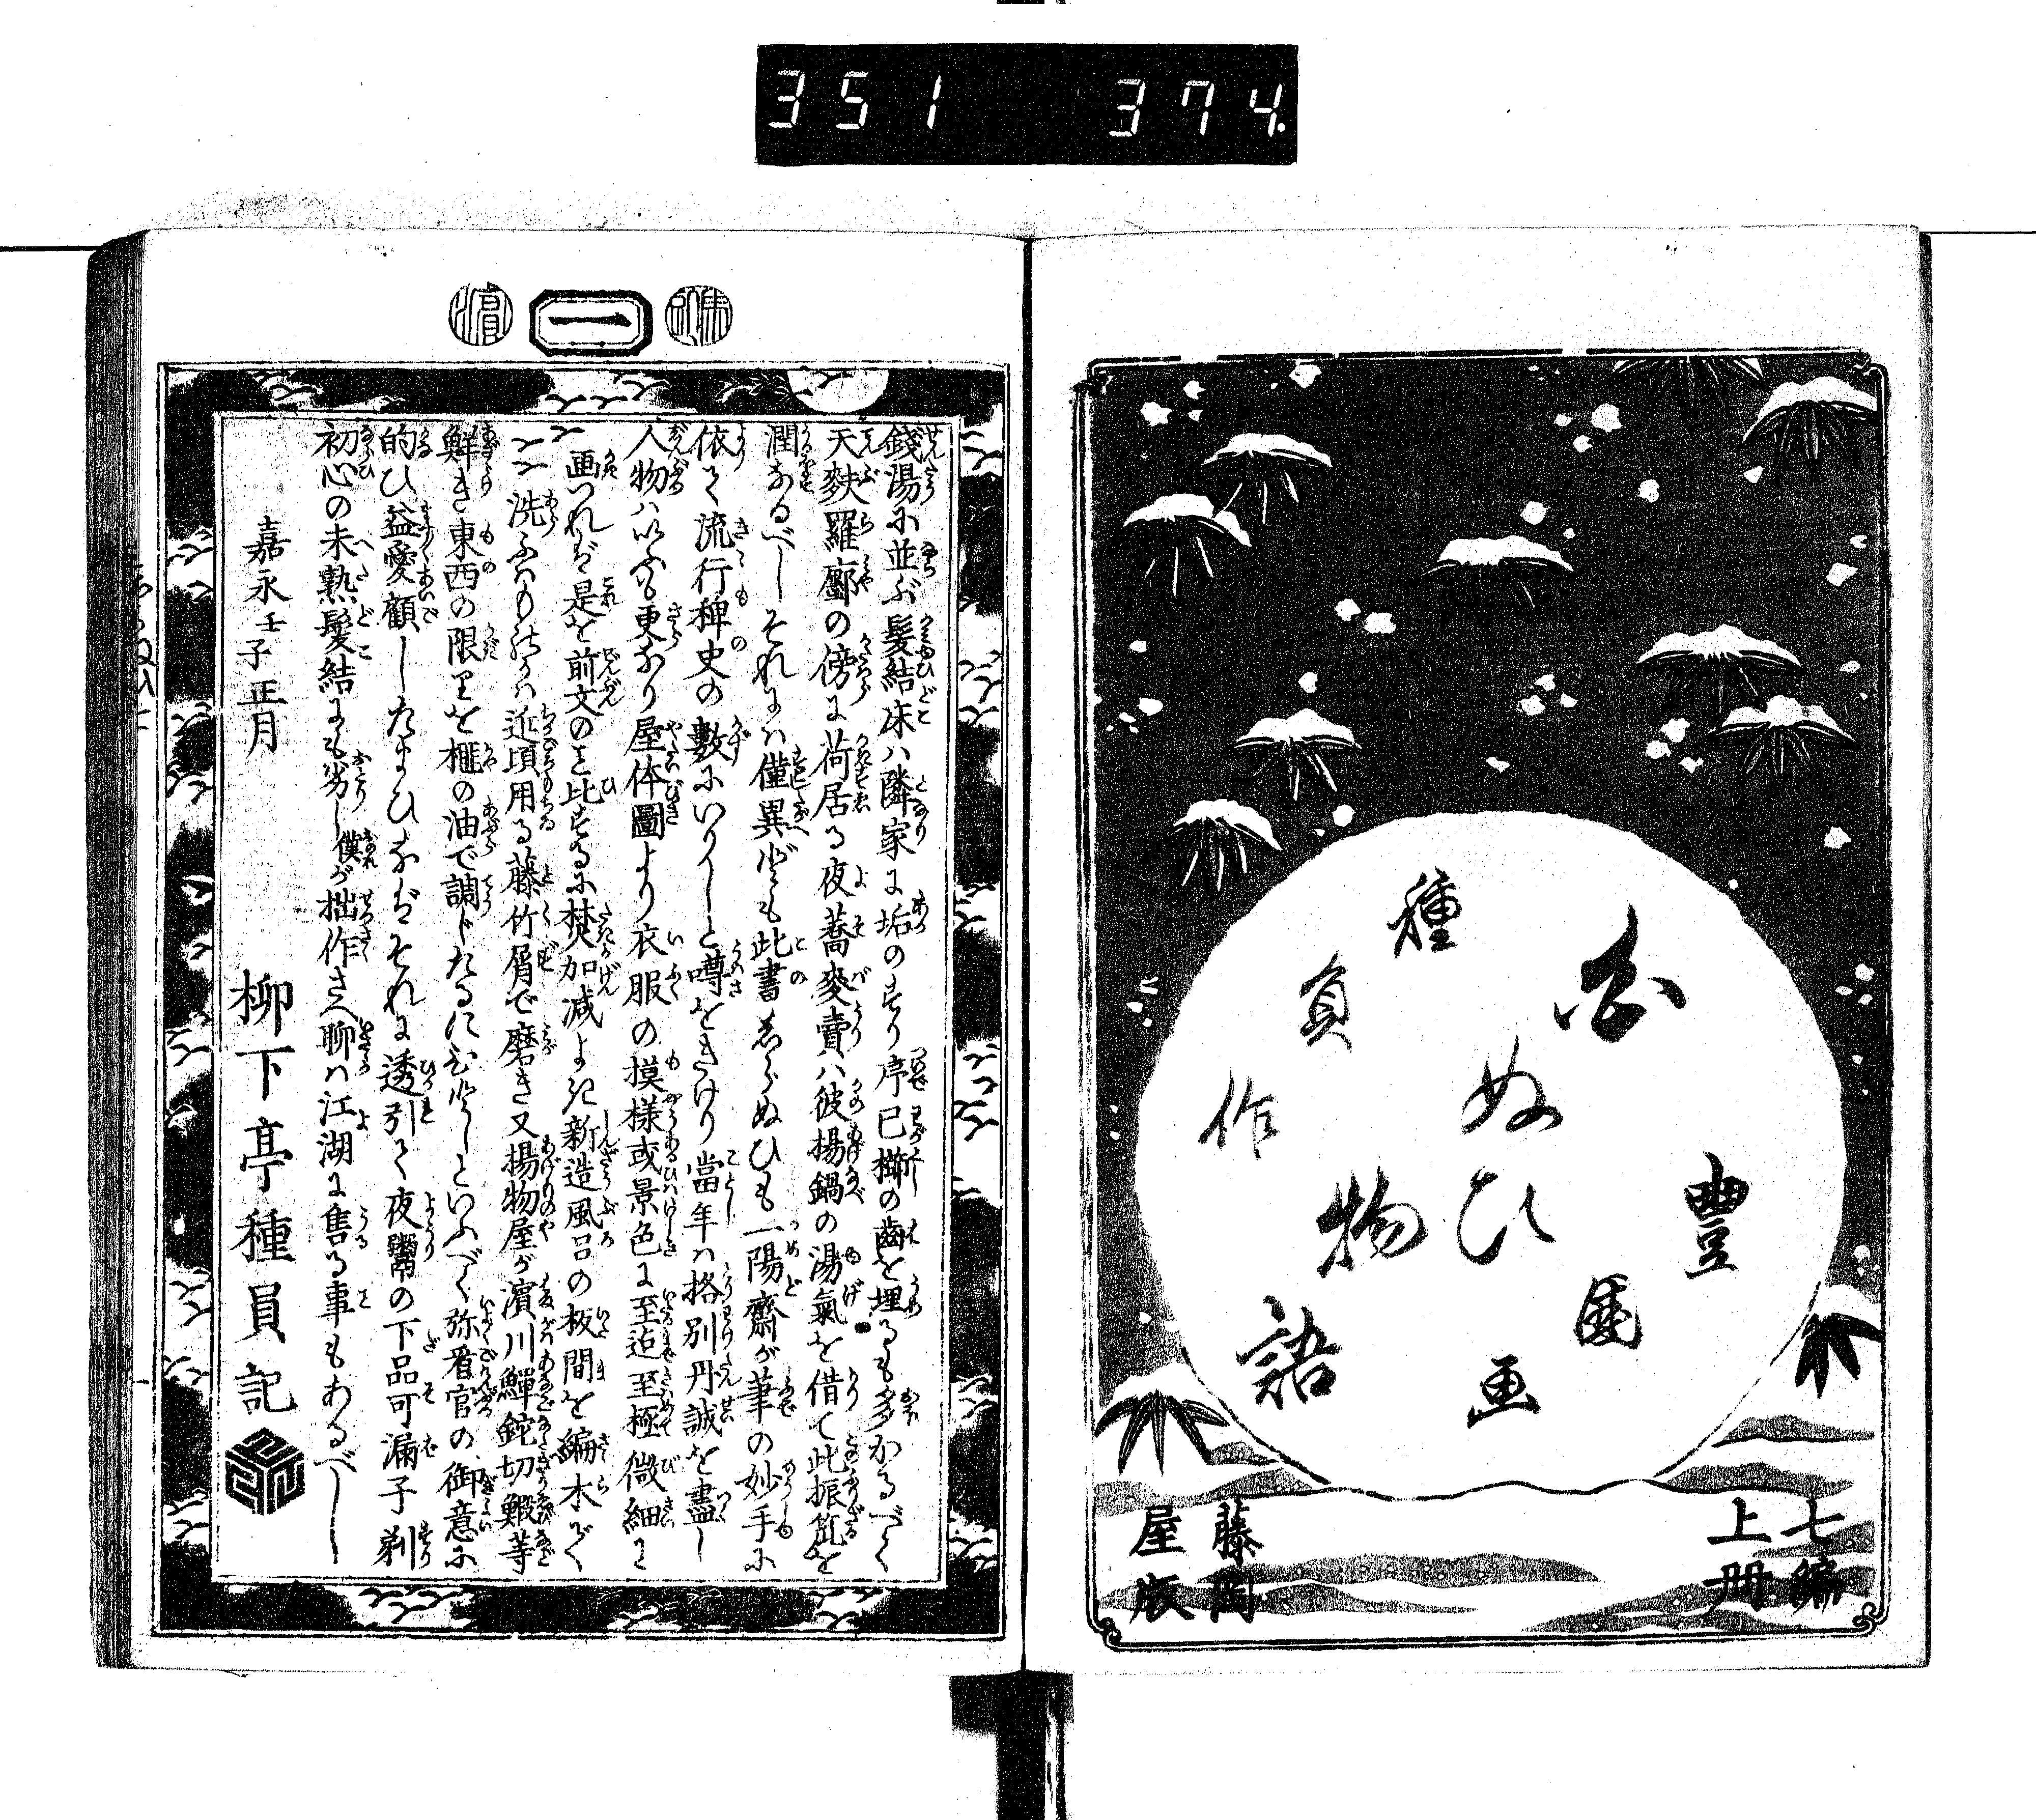 351 374
しらぬひ
物語
種員作
豊国画
七編
上冊
藤岡
屋版
一
銭湯に並ぶ髪結床ハ隣家に垢のすり序已櫛の歯を埋るも多かるべく
天麩羅廓の傍に荷居る夜蕎麥賣ハ彼揚鍋の湯氣を借て此振笊を
潤なるべしそれにハ僅異ども此書しらぬひも一陽齋が筆の妙手に
依て流行稗史の數にいりしと噂をきけり當年ハ格別丹誠を盡し
人物ハいふも更なり屋体圖より衣服の摸様或景色に至迄至極微細に
画つれバ是を前文のと比するに焚加減よき新造風呂の板間を編木で
洗ふ近頃用る藤竹屑で磨き又揚物屋が濱川鱓鉈切鰕等
鮮き東西の限りを榧の油で調じたるにひとしといふべく弥看官の御意に
的ひ益愛顧したまひなバそれに透引て夜鬻の下品可漏子剃
初心の未熟髪結にも劣し僕が拙作さへ聊ハ江湖に售る事もあるべし
嘉永壬子正月
柳下亭種員記